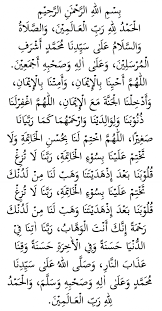 بِسْمِ اللَّهِ الرَّحْمَنِ الرَّحِيْمِ
الحَمْدُ لِلَّهِ رَبِّ الْعَالَمِيْنَ، وَالصَّلَاةُ
وَالسَّلَامُ عَلَى سَيِّدِنَا مُحَمَّدٍ أَشْرَفِ
الْمُرْسَلِيْنَ، وَعَلَى آلِهِ وَصَحْبِهِ أَجْمَعِيْنَ.
اللَّهُمَّ أَحْيِنَا بِالْإِيْمَانِ، وَأَمِتْنَا بِالْإِيْمَانِ،
وَأَدْخِلْنَا الْجَنَّةَ مَعَ الْإِيْمَانِ، اللَّهُمَّ اغْفِرْلَنَا
ذُنُوْبَنَا وَلِوَالِدَيْنَا وَارْحَمْهُمَا كَمَا رَبَّيَانَا
صَغِيْرًا، اللَّهُمَّ اخْتِمْ لَنَا بِحُسْنِ الْخَاتِمَةِ وَلَا
تَخْتِمْ عَلَيْنَا بِسُوْءِ الْخَاتِمَةِ، رَبَّنَا لَا تُزِغْ
قُلُوْبَنَا بَعْدَ إِذْهَدَيْتَنَا وَهَبْ لَنَا مِنْ لَدُنْكَ
تَخْتِمْ عَلَيْنَا بِسُوْءِ الْخَاتِمَةِ، رَبَّنَا لَا تُزِغْ
قُلُوْبَنَا بَعْدَ إِذْهَدَيْتَنَا وَهَبْ لَنَا مِنْ لَدُنْكَ
رَحْمَةً إِنَّكَ أَنْتَ الْوَهَّابُ، رَبَّنَا آتِنَا فِي
الدُّنْيَا حَسَنَةً وَفِي الْآخِرَةِ حَسَنَةً وَقِنَا
عَذَابَ النَّارِ، وَصَلَّى اللهُ عَلَى سَيِّدِنَا
مُحَمَّدٍ وَعَلَى آلِهِ وَصَحْبِهِ وَسَلَّمَ، وَالْحَمْدُ
لِلَّهِ رَبِّ الْعَالَمِيْنَ.